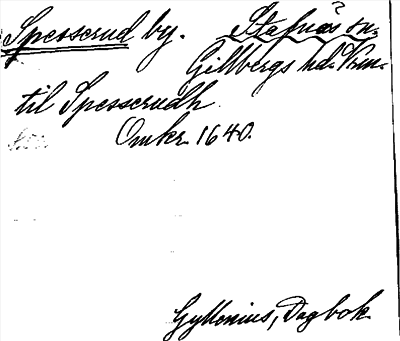 Spersserud by. Stafnäs sn.
Gillbergs hd. Vrm.
til Spesserudh
Omkr. 1640.
Gyllenius, Dagbok